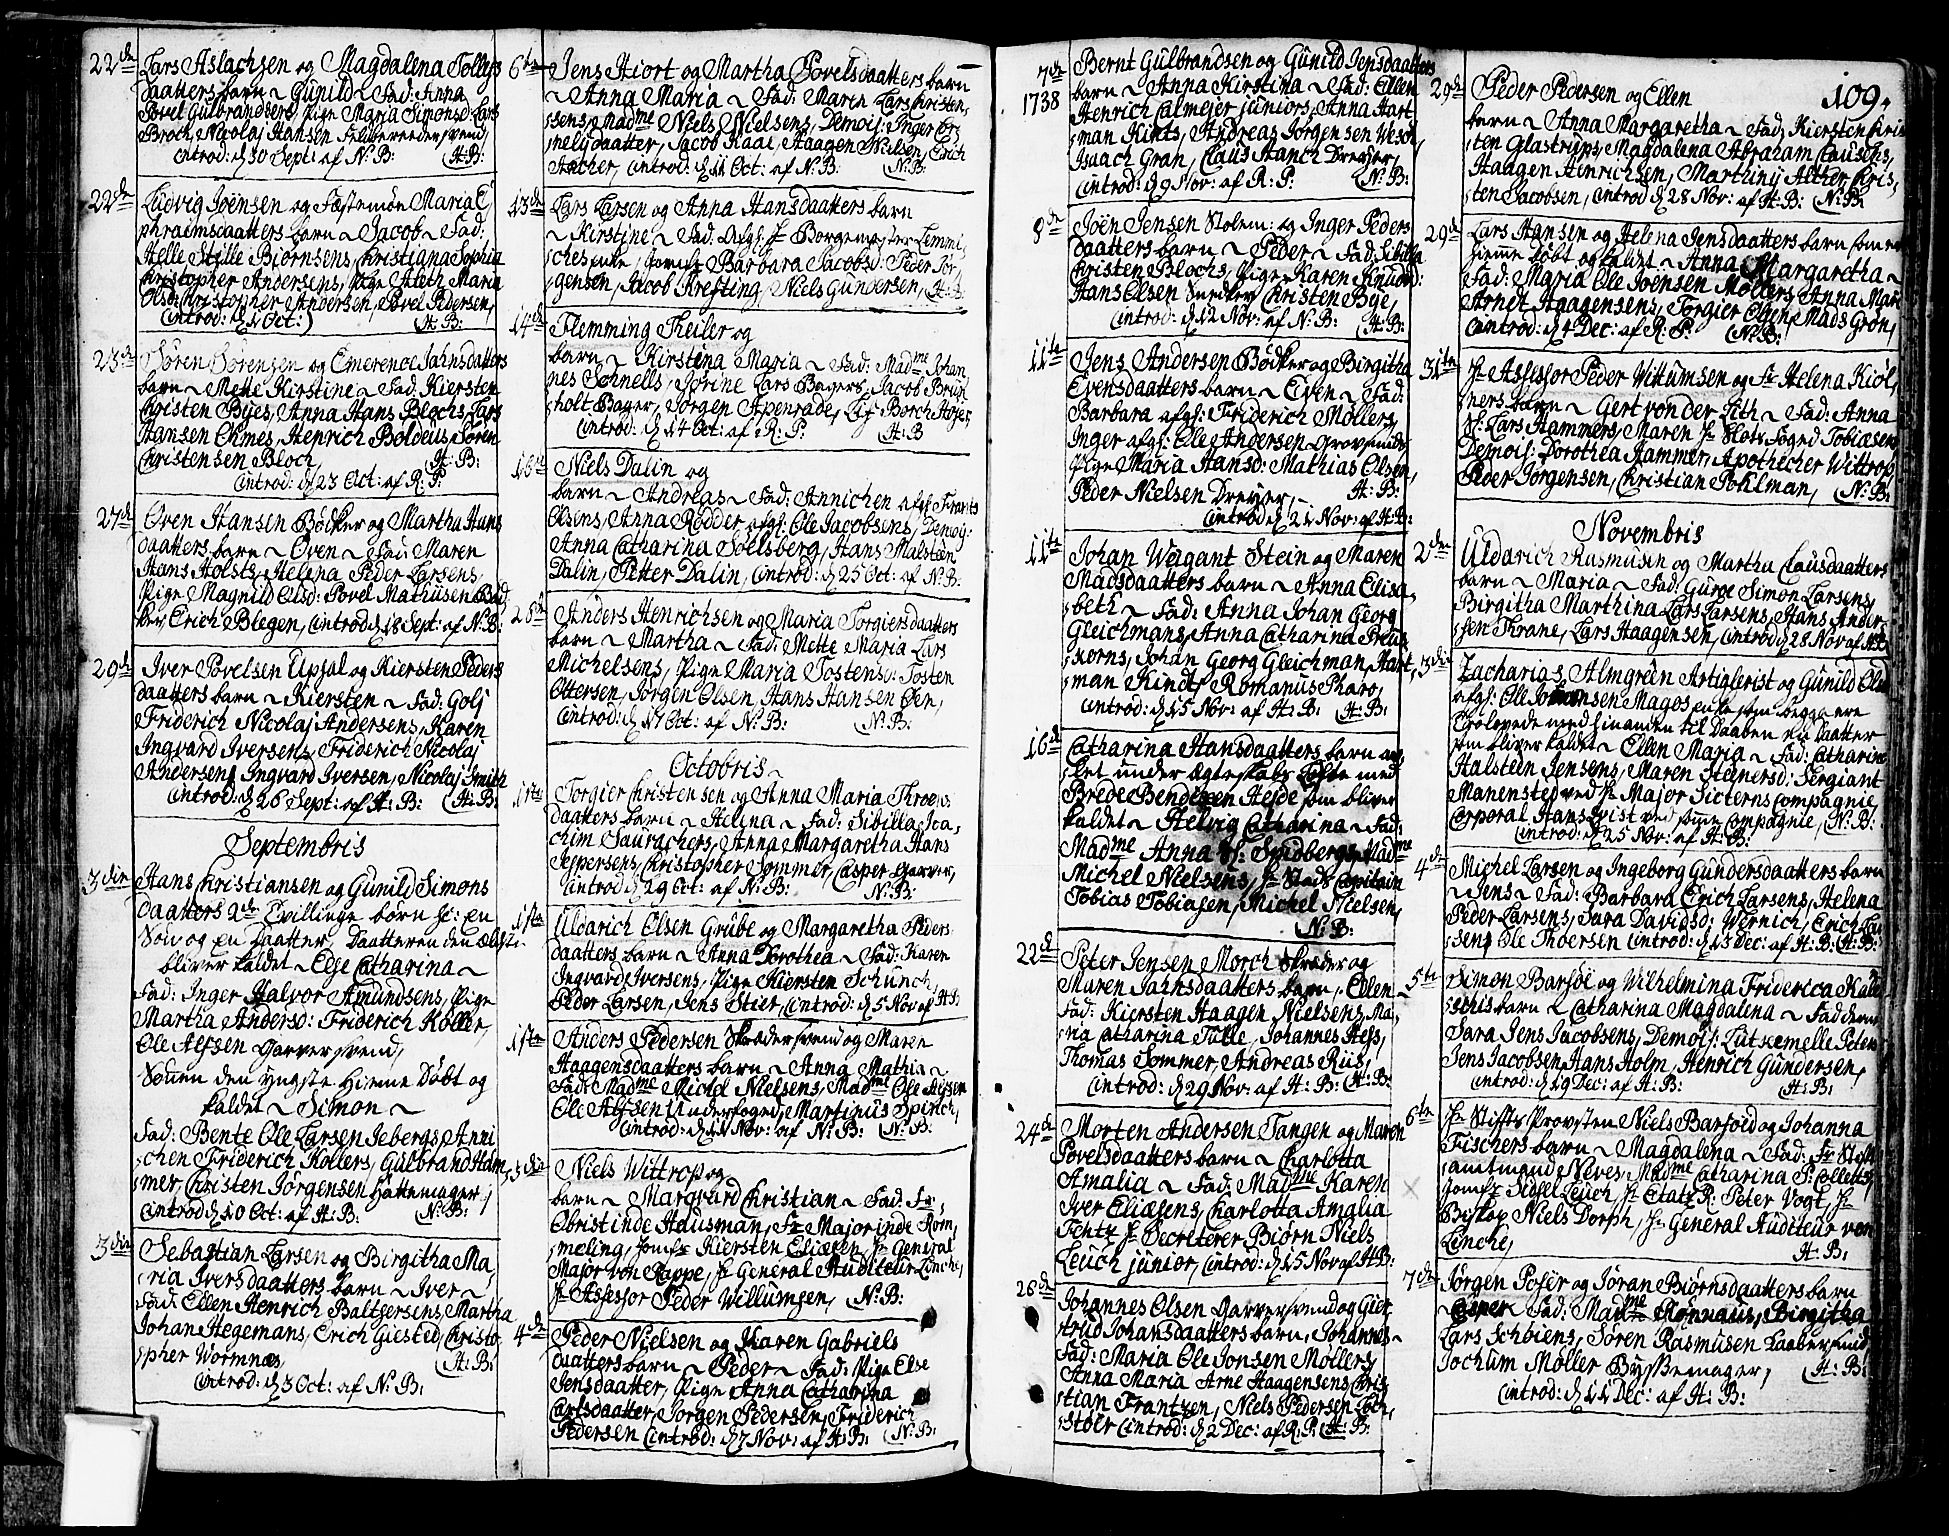 22de Lars Aslachsen og Magdalena Tollefs
daatters barn ~ Gunild ~ Fad: Anna
Povel Gulbrandsens, Pige Maria Simonsd: Lars
Broch, Nicolaj Hansen Feldbereedersvend,
introd: d. 30 Sept: af N: B: (H: B:
22de Ludvig Joensen og Fæstemøe Maria E
phraimsdaatters barn ~ Jacob ~ Fad:
Helle Stille Biørnsens, Christiana Sophia
Christopher Andersens, Pige Aleth Maria
Olsd: Christopher Andersen, Povel Pedersen,
introd: d. 1 Oct:) (H: B:
23de Søren Sørensen og Emerence Jahnsdatters
barn ~ Mette Kirstine ~ Fad: Kiersten
Christen Byes, Anna Hans Blochs, Lars
Hansen Ohmes, Henrich Boldeus, Søren
Christensen Bloch, (H: B:
introd: d. 23 Oct: af R: P:
27de Oven Hansen Bødker og Martha Hans
daatters barn ~ Oven ~ Fad: Maren
Hans Holsts, Helena Peder Larsens,
Pige Magnild Olsd: Povel Mathisen Bød
ker, Erich Blegen, introd: d. 18 Sept: af N: B:
29de Iver Povelsen Upsal og Kiersten Peders
daatters barn ~ Kiersten ~ Fad: Golj
Friderich Nicolaj Andersens, Karen
Ingvard Iversens, Friderich Nicolaj
Andersen, Ingvard Iversen, Nicolaj Smith
introd: d. 26 Sept: af H: B: (H: B:
Septembris
3die Hans Christiansen og Gunild Simons
daatters 2de Tvillinge børn sc: en
Søn og en Daatter, Daatteren den ældste
bliver kaldet ~ Edse Catharina ~
Fad: Inger Halvor Amundsens, Pige
Martha Andersd: Friderich Køller,
Ole Alfsen Garversvend,
Sønnen den yngste Hiemme Døbt og
kaldet ~ Simon ~
Fad: Bente Ole Larsen Jebergs, Anni
chen Friderich Kollers, Gulbrand Ham,
mer, Christen Jørgensen Hattemager,
introd: d. 10 Oct: af H: B: (N: B:
3die Sebastian Larsen og Birgitha Ma
ria Iversdaatters barn ~ Iver ~
Fad: Ellen Henrich Baltzersens, Martha
Johan Hegemans, Erich Giested, Christo
pher Wormnæs, (H: B:
introd: d. 3 Oct: af N: B:
6te Jens Hiort og Martha Povelsdaatters barn
~ Anna Maria ~ Fad: Maren Lars Christen,
sens, Madme Niels Nielsens, Demois: Inger Cor
neliÿdaatter, Jacob Kaae, Haagen Nielsen, Erich
Ancher, introd: d. 11 Oct: af N: B: (N: B:
13de Lars Larsen og Anna Hansdaatters barn
~ Kirstine ~ Fad: Afg: Hr Borgemester Lemmi
ches enke, Jomfr Barbara Jacobsd: Peder Jør
gensen, Jacob Krefting, Niels Gundersen, (H: B:
14de Flemming Theiler og
barn ~ Kirstina Maria ~ Fad: Madme Johan
nes Schnells, Jorine Lars Bagers, Jacob Brun
holt Bager, Jørgen Apenrade, Lars Borch Højer,
introd: d. 14 Oct: af R: P: (H: B:
16de Niels Dalin og
barn ~ Andreas ~ Fad: Annichen afg: Frants
Olsens, Anna Rødder afg: Ole Jacobsens, Demoy:
Anna Catharina Soelsberg, Hans Malstiin
Dalin, Petter Dalin, introd: d. 25 Oct: af N: B:
28de Anders Henrichsen og Maria Torgiersdaatters
barn ~ Martha ~ Fad: Mette Maria Lars
Michelsens, Pige Maria Tostensd: Tosten
Ottersen, Jørgen Olsen, Hans Hansen Øen,
introd: d. 17 Oct: af N: B: (N: B:
Octobris ~
1ste Torgier Christensen og Anna Maria Throens
daatters barn ~ Helena ~ Fad: Sibilla Joa,
chim Saurachers, Anna Margaretha Hans
Jespersens, Christopher Sommer, Casper Garver,
introd: d. 29 Oct: af N: B: (N: B:
1ste Uldarich Olsen Grube og Margaretha Peders
daatters barn ~ Anna Dorothea ~ Fad: Karen
Ingvard Iversens, Pige Kiersten Schunch,
Peder Larsen, Jens Stier, introd: d. 5 Nov: af H: B:
1ste Anders Pedersen Skredersvend og Maren
Haagensdaatters barn ~ Anna Mathia ~
Fad: Madme Michel Nielsens, Madme Ole Alfsen
Ole Alfsen Underfoged, Martinus Spirich,
introd: d. 11 Nov: af N: B: (N: B:
3die Niels Wittrop og
barn ~ Marqvard Christian ~ Fad: Fr,
Obristinde Hausman, Fr Majorinde Rom,
meling, Jomfr Kiersten Eliæsen, Hr General
Major von Rappe, Hr General Auditeur Linche,
Hr Assessor Peder Willumsen, (N: B:
4de Peder Nielsen og Karen Gabriels
daatters barn ~ Peder ~ Fad: Pige Else
Jensdaatter, Pige Anna Catharina
Carlsdaatter, Jørgen Pedersen, Friderich
Pedersen introd: d. 7 Nov: af H: B: (N: B:
7de 1738 Bernt Gulbrandsen og Gunild Jensdaatters
barn ~ Anna Kirstina ~ Fad: Ellen
Henrich Calmejer juniors, Anna Hart
man Kints, Andreas Jørgensen Wesøe,
Isaach Gran, Claus Stanch Dreyer,
introd: d. 9 Nov: af R: P: (N: B:
8de Joen Jensen Stolem: og Inger Peders
daatters barn ~ Peder ~ Fad: Sibilla
Christen Blochs, Pige Karen Knudsd:
Hans Olsen Snedker, Christen Bye,
introd: d. 12 Nov: af N: B: (H: B:
11te Jens Andersen Bødker og Birgitha
Evensdaatters barn ~ Even ~ Fad:
Barbara afg: Friderich Møllers,
Inger afg: Ole Andersen Grovsmeds
Pige Maria Hansd: Mathias Olsen,
Peder Nielsen Dreyer, ~ (H: B:
introd: d. 21 Nov: af H: B:
11te Johan Weigant Stein og Maren
Madsdaatters barn ~ Anna Elisa,
beth ~ Fad: Anna Johan Georg
Gleichmans, Anna Catharina Preus
korns, Johan Georg Gleichman, Hart,
man Kindt, Romanus Pharo,
introd: d. 15 Nov: af H: B: (H: B:
16de Catharina Hansdaatters barn av,
let under Ægteskabs Løfte med
Brede Bendixen Hesse som bliver
kaldet ~ Helvig Catharina ~ Fad:
Madme Anna Sl: Sundbergs, Madme
Michel Nielsens, Hr Stads Capitain
Tobias Tobiasen, Michel Nielsen,
(N: B:
22de Peter Jensen Morch Skræder og
Maren Jahnsdaatters barn ~ Ellen ~
Fad: Kiersten Haagen Nielsens, Ma,
ria Catharina Tulle, Johannes Hess,
Thomas Sommer, Andreas Rus,
introd: d. 29 Nov: af H: B: (H: B:
24de Morten Andersen Tangen og Maren
Povelsdaatters barn ~ Charlotta
Amalia ~ Fad: Madme Karen
Iver Eliæsens, Charlotta Amalia
Fentz, Hr Secreterer Biørn Niels
Leuch junior, introd: d. 15 Nov af H: B:
28de Johannes Olsen Garversvend og Giet
hrud Johansdaatters barn, Johannes ~
Fad: Maria Ole Jonsen Møllers,
Anna Maria Arne Haagensens, Chris
tian Frantzen, Niels Pedersen Loch,
støer introd: d. 2 Dec: af R: P: (H: B:
109.
29de Peder Pedersen og Ellen
barn ~ Anna Margaretha ~ Fad: Kiersten Chris
ten Glastrups, Magdalena Abraham Clausens,
Haagen Henrichsen, Marthiny Alther, Chris,
ten Jacobsen, introd: d. 28 Nov: af H: B: (N: B:
29de Lars Hansen og Helena Jensdaatters barn som er
hiemme Døbt og kaldet ~ Anna Margaretha ~
Fad: Maria Ole Joensen Møllers, Anna Mar
Arnet Haagensens, Torgier Olsen, Mads Grøn,
introd: d. 4 Dec: af R: P: (N: B:
31te Hr Assessor Peder Wittumsen og Fr Helena Kiøl,
ners barn ~ Gert von der Lith ~ Fad: Anna
Sl: Lars Hammers, Maren Hr Slots Foged Tobiæsens,
Demois: Dorothea Hammer, Apothecher Wittrop,
Peder Jørgensen, Christian Pohlman, (N: B:
Novembris
2den Uldarich Rasmusen og Martha Clausdaatters
barn ~ Maria ~ Fad: Gurre Simon Larsens,
Birgitha Marthina Lars Larsens, Hans Ander,
sen Thrane, Lars Haagensen, introd: d. 28 Nov af H: B:
3die Zacharias Almgreen Artiglerist og Gunild Olsd:
afg: Ole Johansen Magos enke som begge ere
Trolovede med hinanden til Daaben en Daatter
som bliver kaldet ~ Ellen Maria ~ Fad: Catharina
Halsteen Jensens, Maren Steenersd: Sergiant
Manensted ved Hr Major Sicterns Compagnie,
Corporal Hans Qvist ved samme Compagnie, (N: B:
introd: d. 25 Nov: af H: B:
4de Michel Larsen og Ingeborg Gundersdaatters barn
~ Jens ~ Fad: Barbara Erich Larsens, Helena
Peder Larsens, Sara Davidsd: Wernich, Erich Lar
sen, Ole Thoersen introd: d. 13 Dec: af H: B: (H: B:
5te Simon Barføi og Wilhelmina Friderica Kald
schis barn ~ Catharina Magdalena ~ Fad
Sara Jens Jacobsens, Demois: Lutkemelle Peters
Jens Jacobsen, Hans Holm, Henrich Gundersen,
introd: d. 19 Dec: af H: B: (H: B:
6te Hr StiftsProvsten Niels Barføed og Johanna
Fischers barn ~ Magdalena ~ Fad: Fr Stifts
amtmand Neves, Madme Catharina P: Colletts,
Jomfr Sidsel Leuch, Hr Etatz R: Peter Vogt, Hr
Biskop Niels Dorph, Hr General Auditeur von
Linche, (H: B:
7de Jørgen Posÿr og Jøran Biørnsdaatters barn
~ Casper ~ Fad: Madme Rønnaus, Birgitha
Lars Schbiens, Søren Rasmusen Laabersmid,
Jochum Møller Byssemager, (H: B:
introd: d. 11 Dec: af H: B: